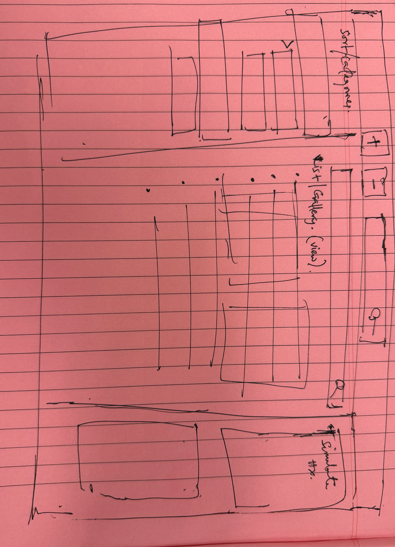 Sort/Categories.
+
-
List/Gallery. (view).
Simulate